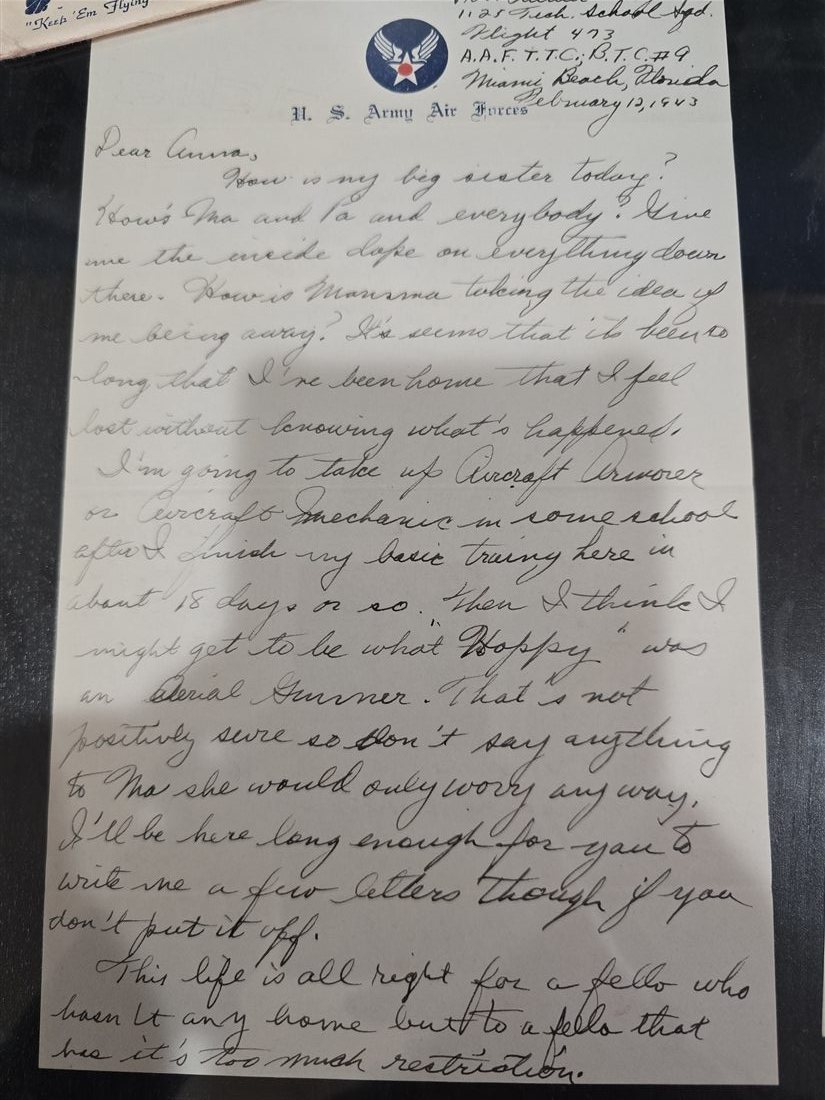 "Keep 'Em Flying
1128 Tech. School Sqd.
Flight 473
A.A.F.T.T.C.; B.T.C. #9
Miami Beach, Florida
February 12, 1943
U. S. Army Air Forces
Dear Anna,
How is my big sister today?
How's Ma and Pa and everybody? Give
me the inside dope on everything down
there. How is Mamma taking the idea of
me being away? It's seems that it's been so
long that I've been home that I feel
lost without knowing what's happened.
I'm going to take up Aircraft Armorer
or Aircraft Mechanic in some school
after I finish my basic trainy here in
about 18 days or so. Then I think I
might get to be what "Hoppy" was
an Aerial Gunner. That's not
positively sure so don't say anything
to Ma she would only worry anyway.
I'll be here long enough for you to
write me a few letters though if you
don't put it off.
This life is all right for a fello who
hasn't any home but to a fella that
has it's too much restriction.